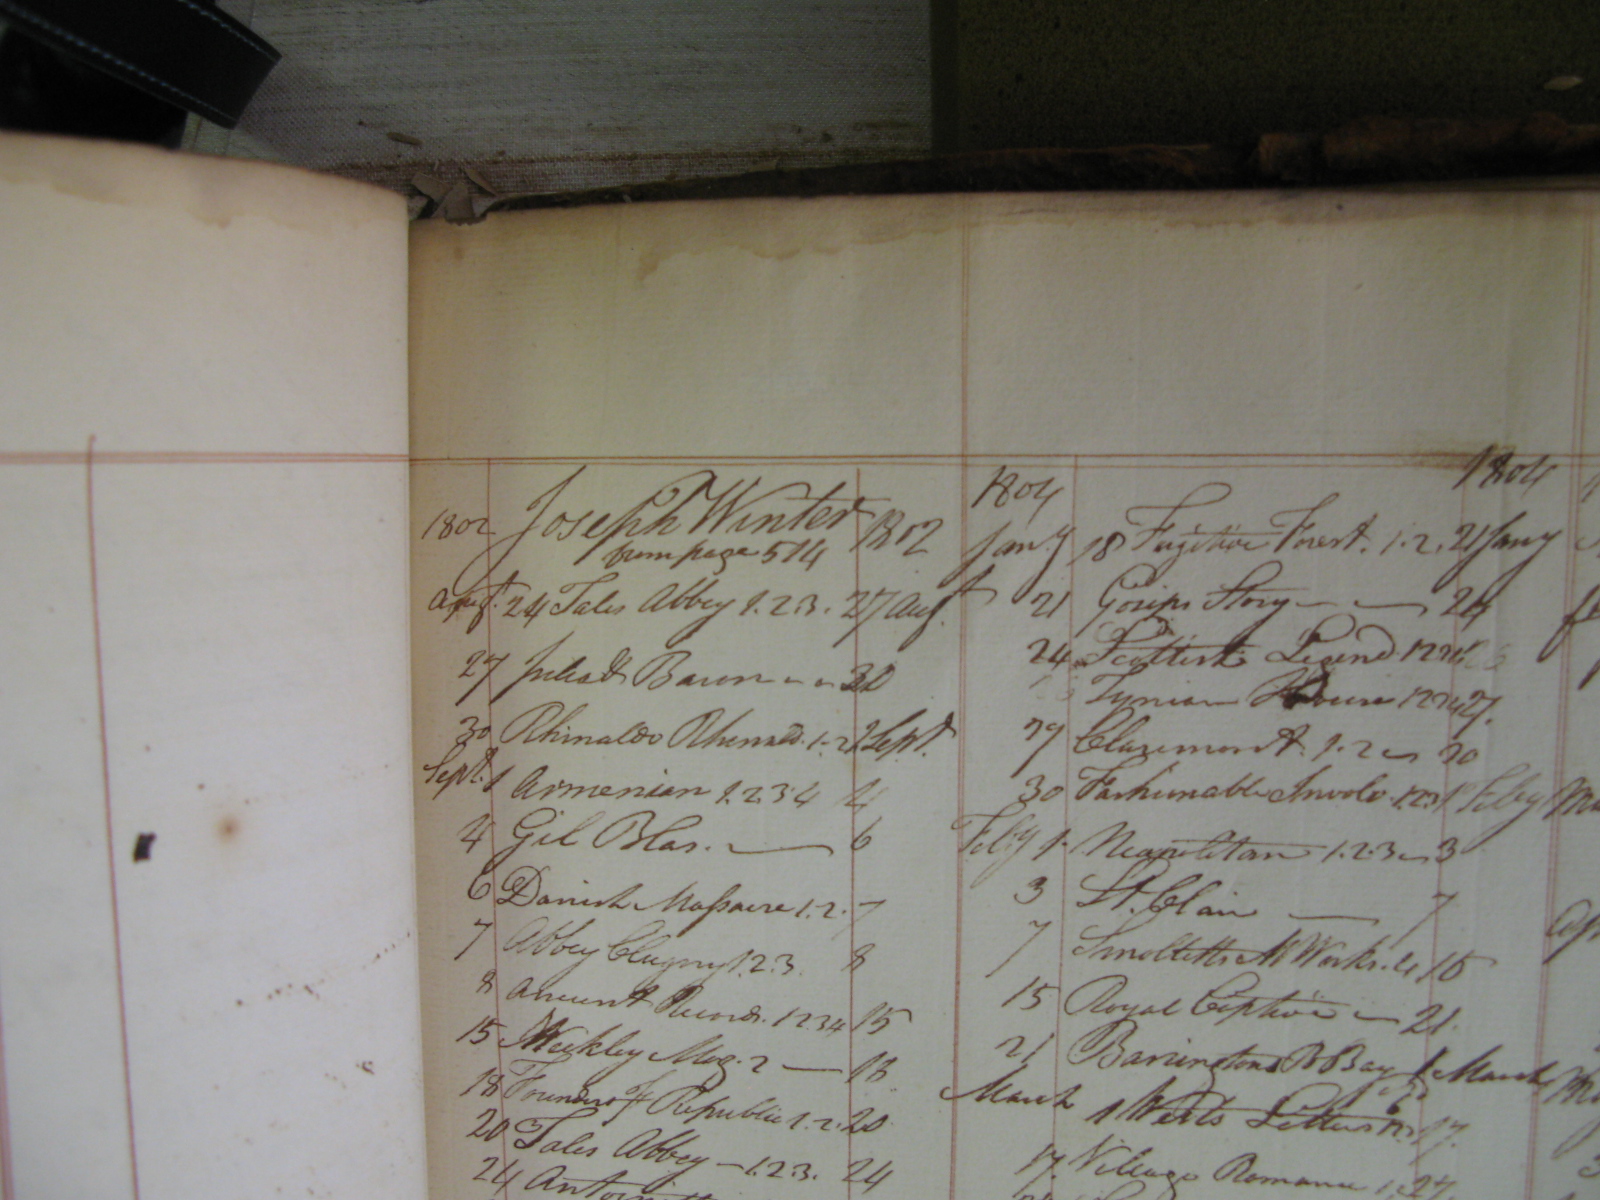 1802 Joseph Winter 1802
from page 514
Augt. 24 Tales Abbey 1.2.3. 27 Augt
27 Julia de Baron 30
30 Rhinaldo 1.2 2 Sept.
Sept. 1 Armenian 1.2.3.4 4
4 Gil Blas. 6
6 Danish Massacre 1.2. 7
7 Abbey Clugny 1.2.3. 8
8 Ancient Records. 1234 15
15 Weekley Mag. 2 18
18 Founder of Republic 1.2. 20
20 Tales Abbey 1.2.3. 24
24
1804 1804
Jany 18 Fugitive Forest. 1.2. 21 Jany
21 Gosips Story 24
24 Scottish Legend
Tynian 27.
29 Claremont. 1.2 30
30 Fashionable Involv. 1.2.3 1 Feby
Feby 1 Neapolitan 1.2.3 3
3 St. Clair 7
7 Smolletts M Works. 4 15
15 Royal Captive 21
21 Barringtons B Bay 1 March
March 1 Werts Letters 17.
17. Village Romance 1.2 27